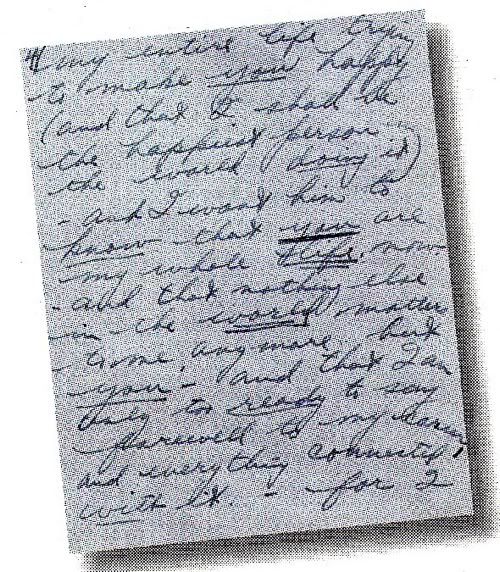 my entire life trying
to make you happy
(and that I shall be
the happiest person
the world doing it)
- and I want him to
know that you are
my whole life now
- and that nothing else
in the world matters
to me, any more, but
you - and that I am
only too ready to say
farewell to my career,
and everything connected
with it. - for I